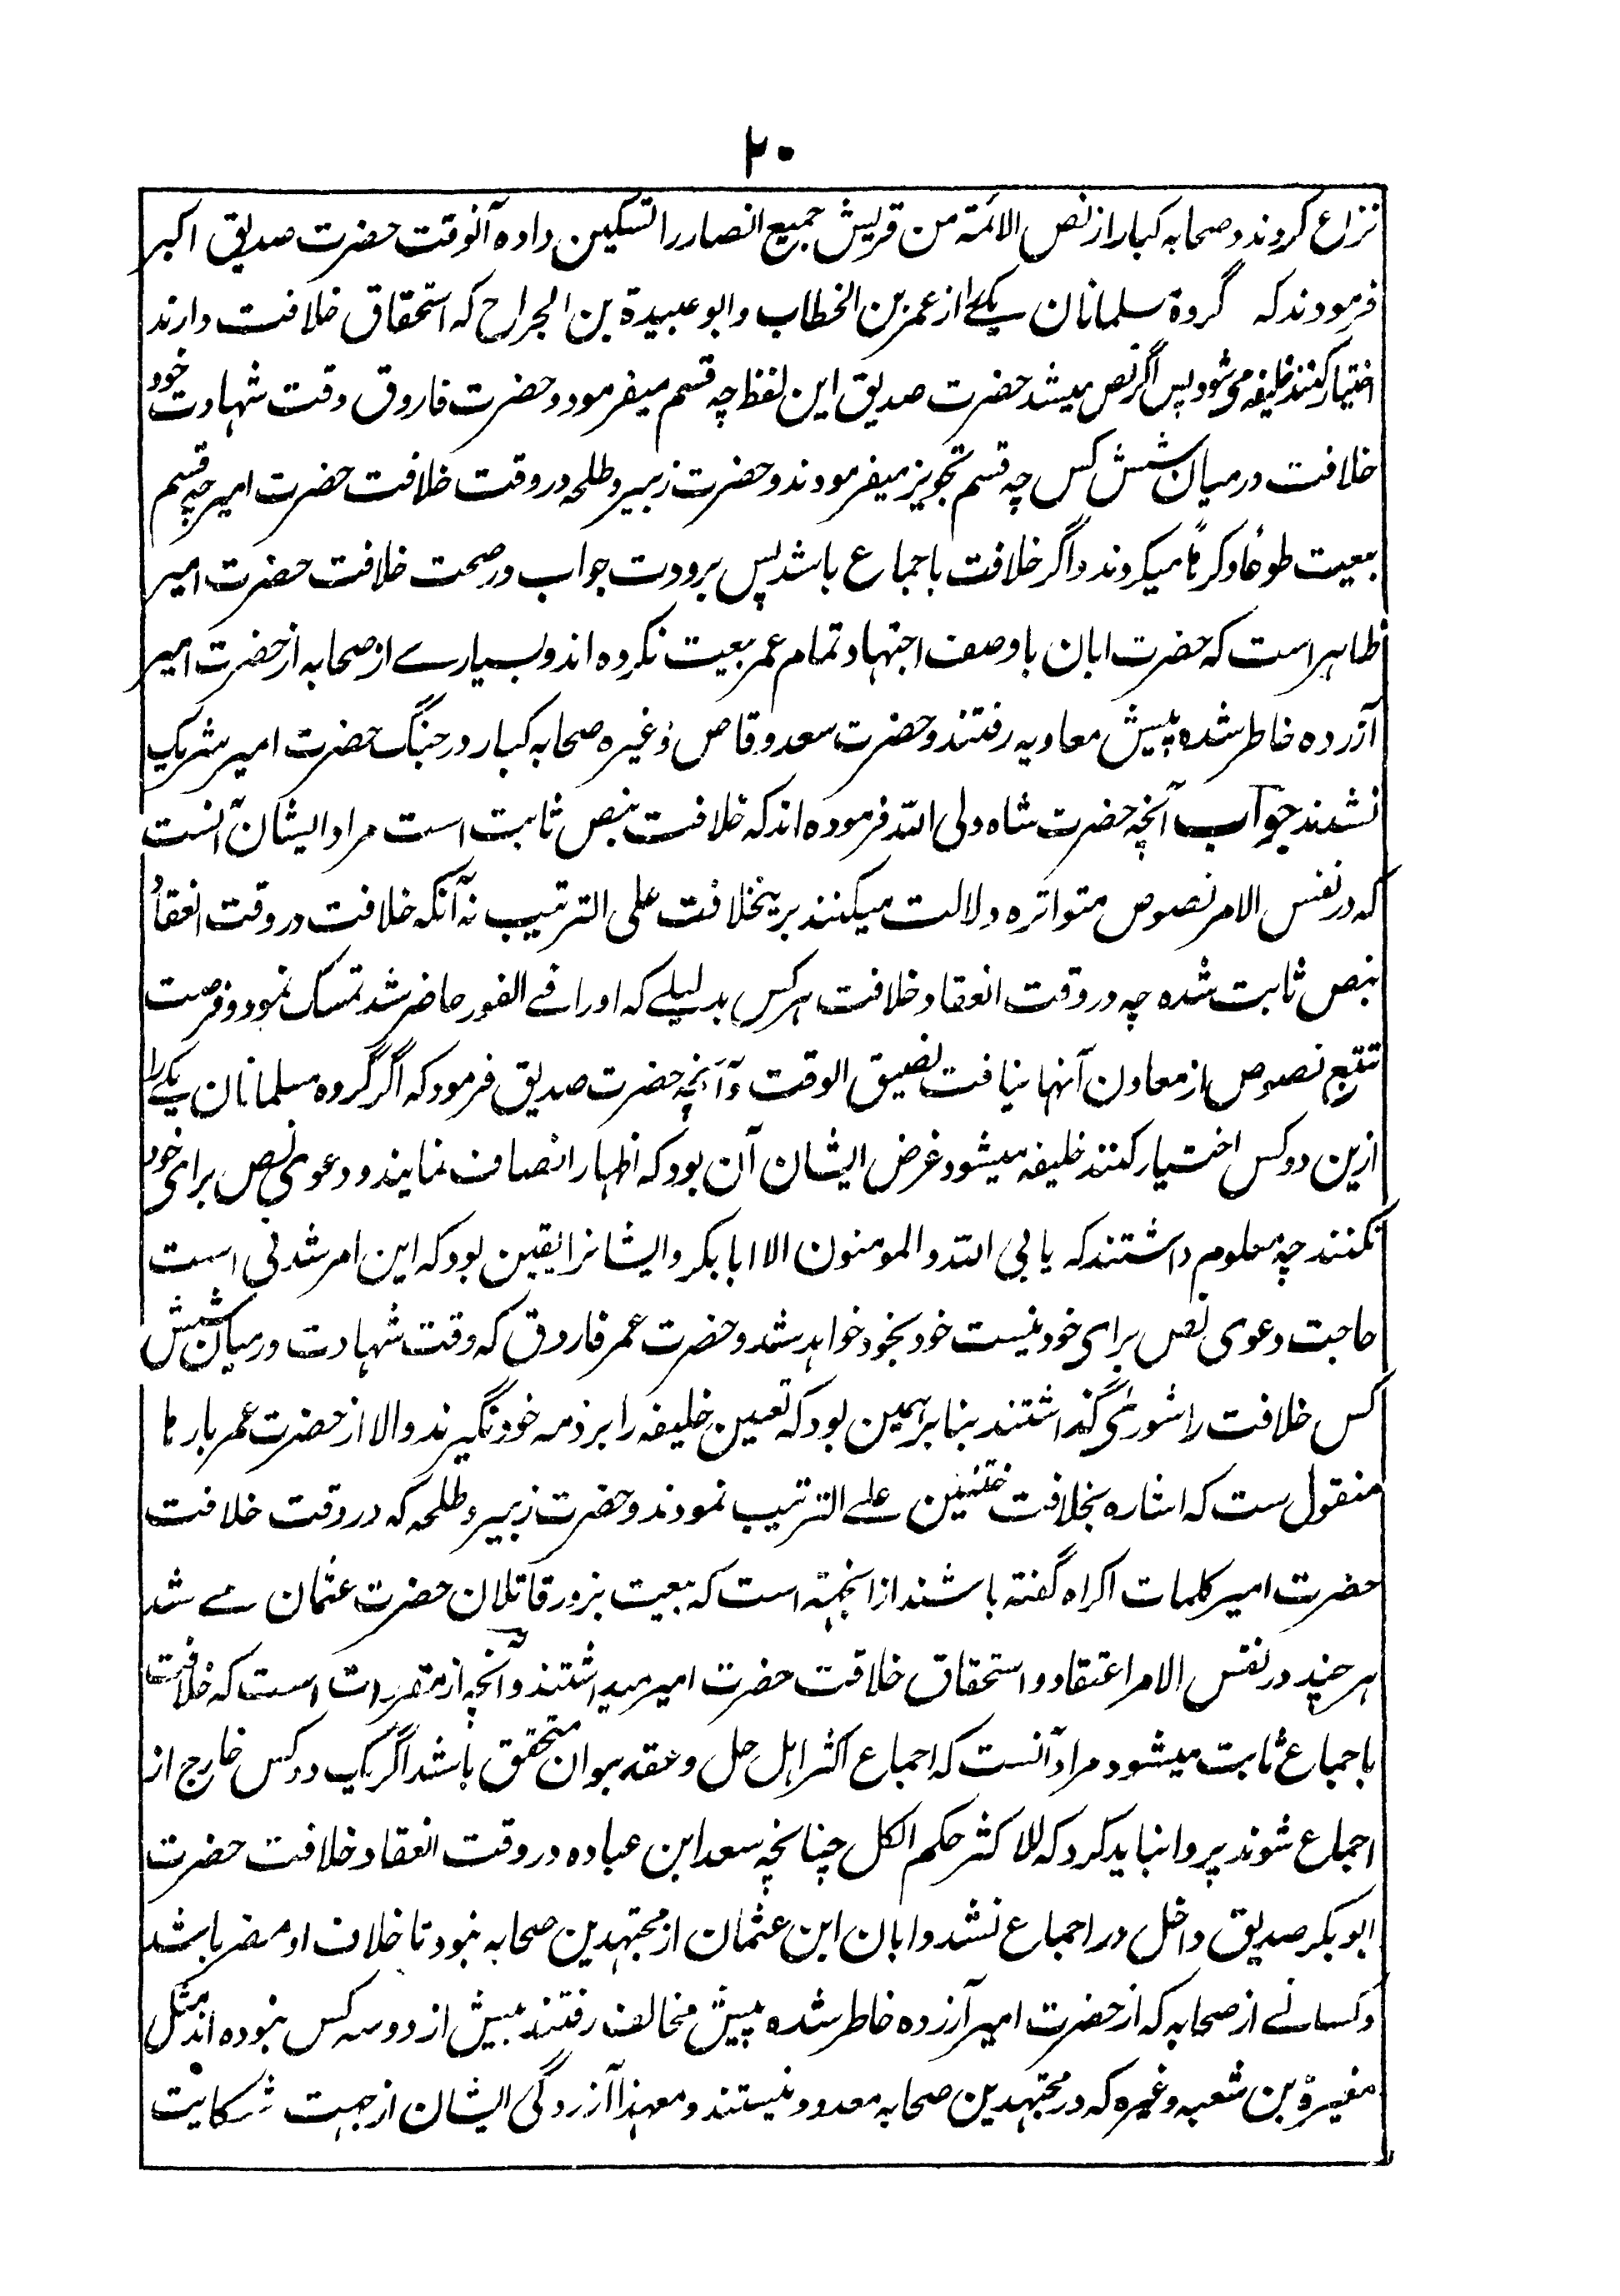 ۲۰
نزاع کردند و صحابہ کبار از نص الائمة من قریش جمیع انصار را تسکین داده آنوقت حضرت صدیق اکبر
فرمودند که گروه مسلمانان یکے از عمر بن الخطاب و ابو عبیدة بن الجراح که استحقاق خلافت دارند
اختیار کنند خلیفه می شود پس اگر نص میشد حضرت صدیق این لفظ چه قسم میفرمود و حضرت فاروق وقت شهادت خود
خلافت در میان شش کس چه قسم تجویز میفرمودند و حضرت زبیر و طلحه در وقت خلافت حضرت امیر چه قسم
بیعت طوعاً و کرهاً میکردند و اگر خلافت باجماع باشد پس برودت جواب در صحت خلافت حضرت امیر
ظاهر است که حضرت ابان با وصف اجتهاد تمام عمر بیعت نکرده اند و بسیارے از صحابه از حضرت امیر
آزرده خاطر شده پیش معاویه رفتند و حضرت سعد وقاص و غیره صحابه کبار در جنگ حضرت امیر شریک
نشدند جواب آنچه حضرت شاه ولی الله فرموده اند که خلافت بنص ثابت است مراد ایشان آنست
که در نفس الامر نصوص متواتره دلالت میکنند برینخلافت علی الترتیب نه آنکه خلافت در وقت انعقاد
بنص ثابت شده چه در وقت انعقاد خلافت هر کس بدلیلے که او را فے الفور حاضر شد تمسک نمود و فرصت
تتبع نصوص از معادن آنها نیافت لضیق الوقت و آنچه حضرت صدیق فرمود که اگر گروه مسلمانان یکے را
ازین دو کس اختیار کنند خلیفه میشود غرض ایشان آن بود که اظهار انصاف نمایند و دعوی نص برای خود
نکنند چه معلوم داشتند که یابی الله والمومنون الا ابابکر و ایشانرا یقین بود که این امر شدنی است
حاجت دعوی نص برای خود نیست خود بخود خواهد شد و حضرت عمر فاروق که وقت شهادت در میان شش
کس خلافت را شوریٰ گذاشتند بنا بر همین بود که تعیین خلیفه را بر ذمه خود نگیرند والا از حضرت عمر بارها
منقول ست که اشاره بخلافت ختنین علے الترتیب نمودند و حضرت زبیر و طلحه که در وقت خلافت
حضرت امیر کلمات اکراه گفته باشند ازانجهة است که بیعت بزور قاتلان حضرت عثمان مے شد
هر چند در نفس الامر اعتقاد و استحقاق خلافت حضرت امیر میداشتند و آنچه از مقررات است که خلافت
باجماع ثابت میشود مراد آنست که اجماع اکثر اهل حل و عقد بوان متحقق باشد اگر یک دو کس خارج از
اجماع شوند پروا نباید کرد که للاکثر حکم الکل چنانچه سعد ابن عباده در وقت انعقاد خلافت حضرت
ابو بکر صدیق داخل در اجماع نشد و ابان ابن عثمان از مجتهدین صحابه نبود تا خلاف او مضر باشد
و کسانے از صحابه که از حضرت امیر آزرده خاطر شده پیش مخالف رفتند بیش از دو سه کس نبوده اند مثل
مغیرة بن شعبه و غیره که در مجتهدین صحابه معدود نیستند و معهذا آزردگی ایشان از جهت شکایت